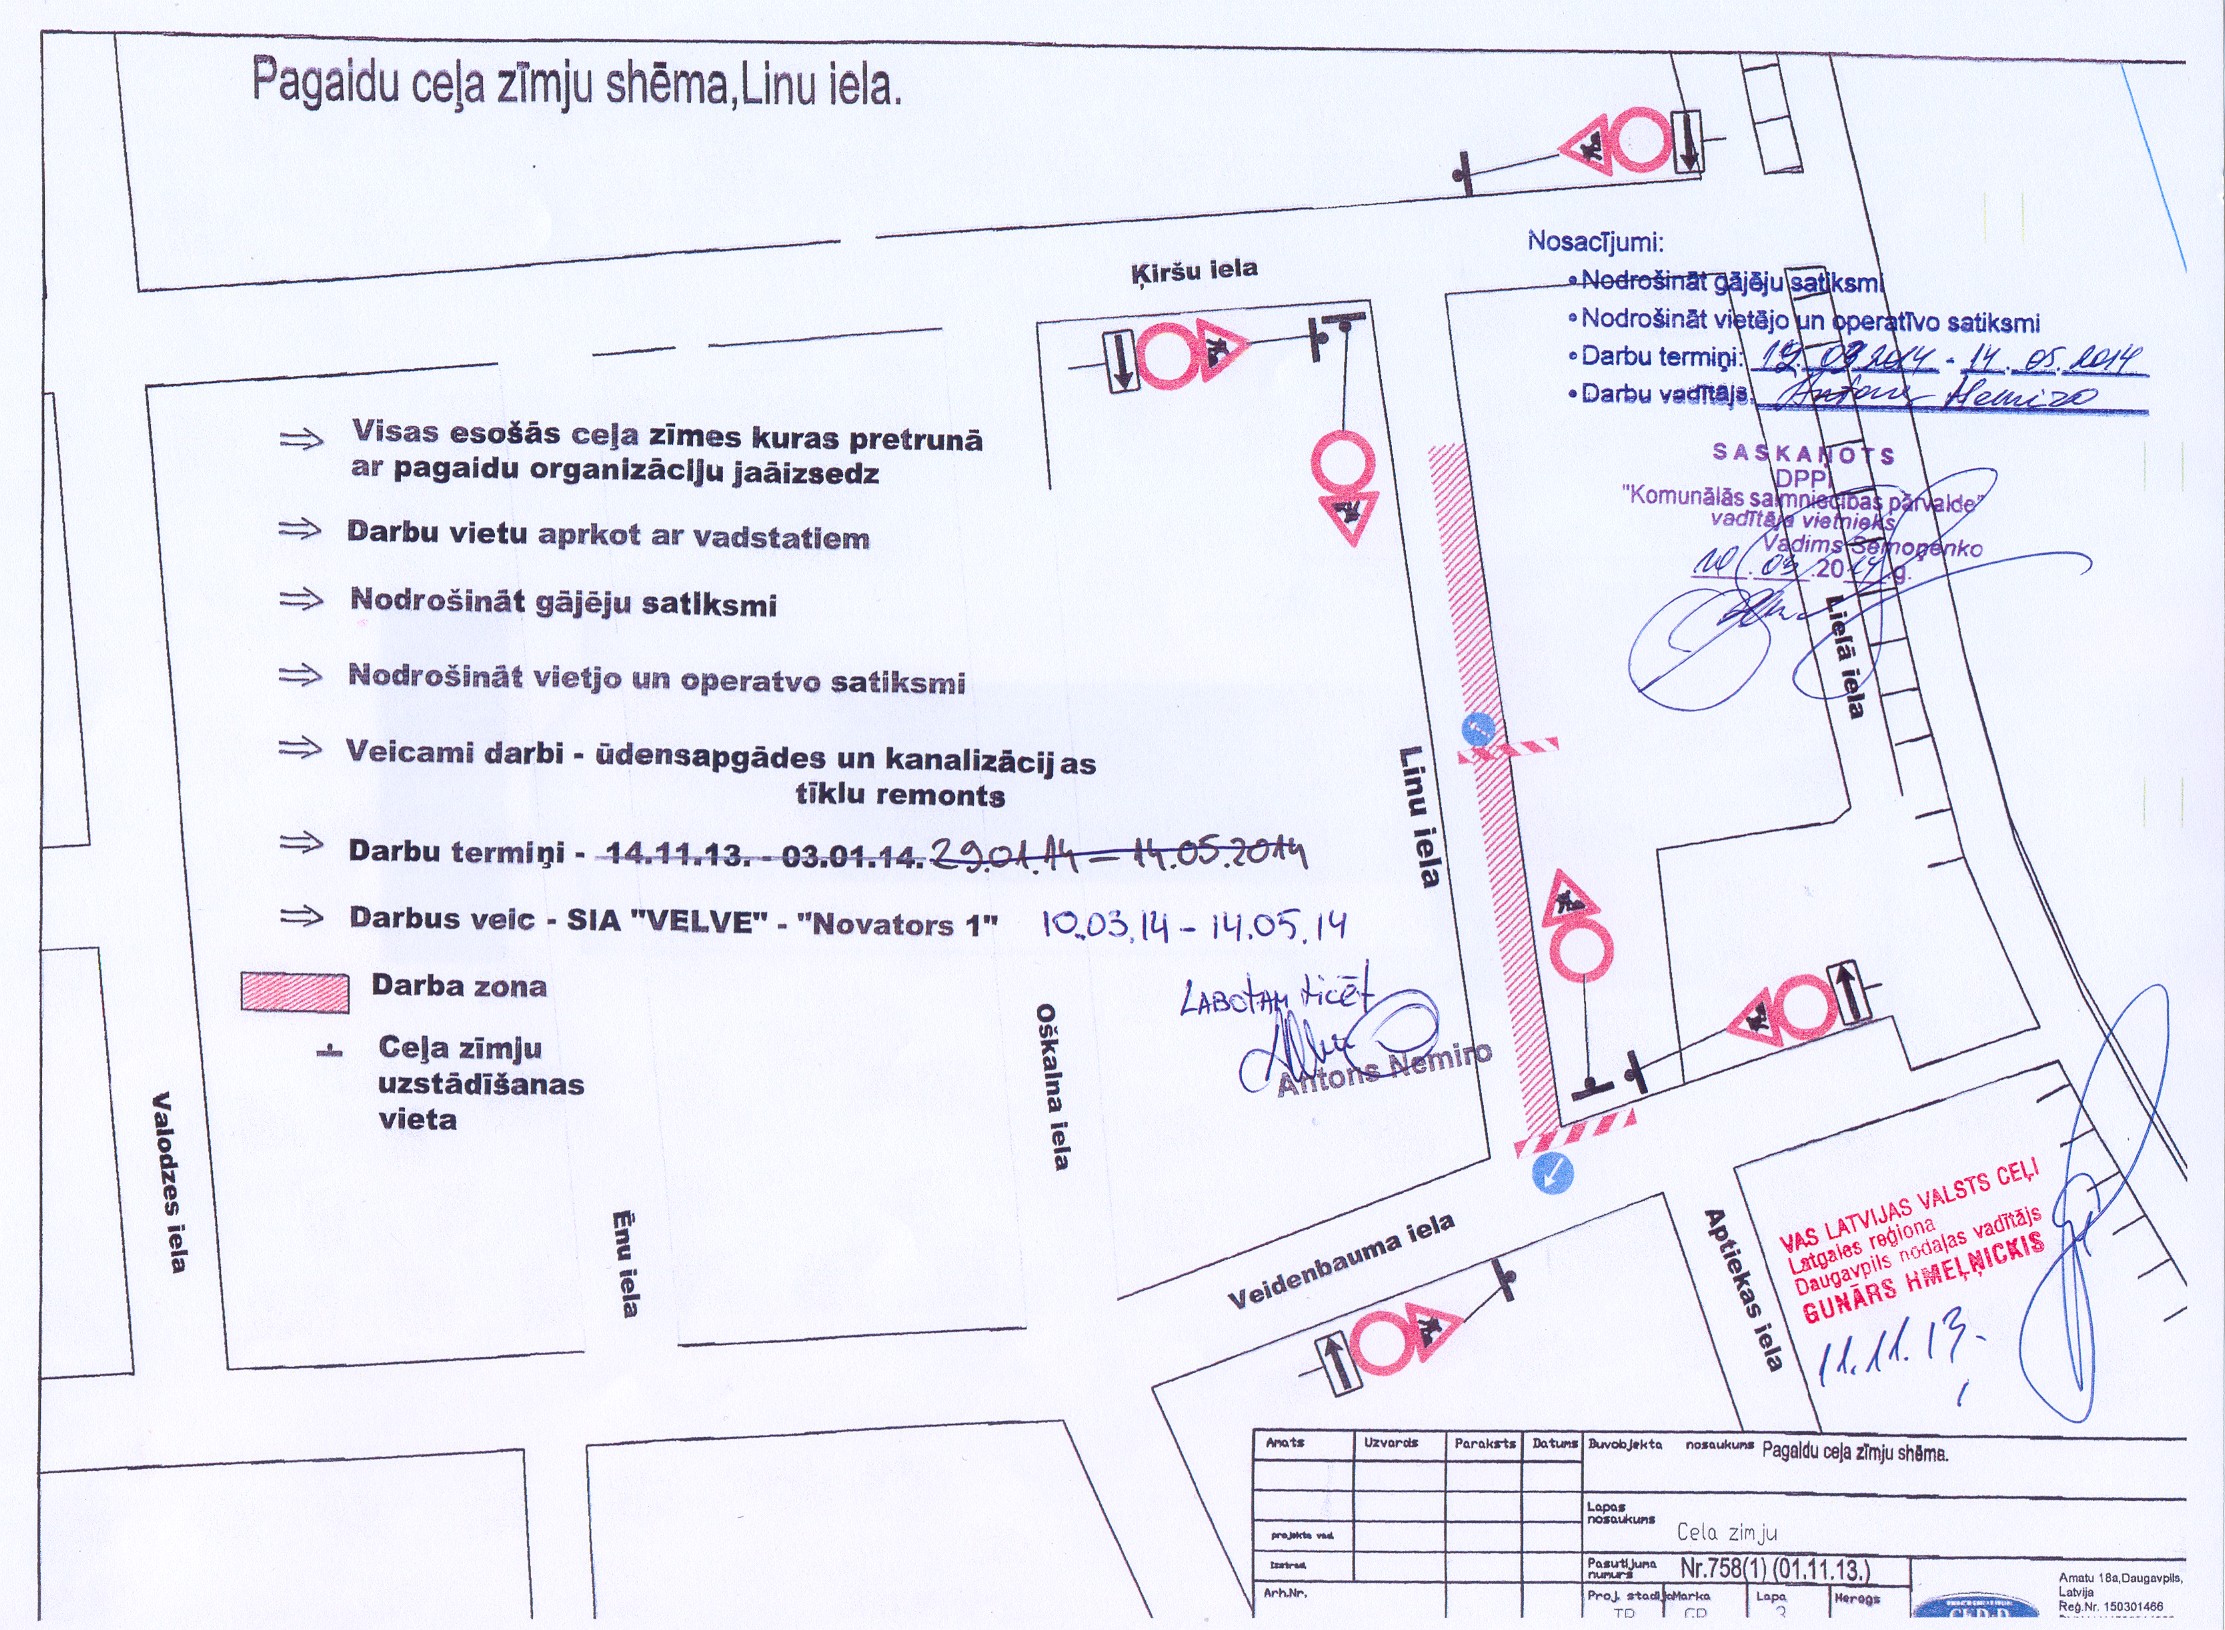 Pagaidu ceļa zīmju shēma,Linu iela.
Ķiršu iela
Nosacījumi:
• Nodrošināt gājēju satiksmi
• Nodrošināt vietējo un operatīvo satiksmi
• Darbu termiņi: 03.2014 - 14.05.2014
• Darbu vadītājs
SASKAŅOTS
DPPI
"Komunālās saimniecības pārvalde"
vadītāja vietnieks
Vadims Semoņenko
10.03.2014.g.
Lielā iela
⇒ Visas esošās ceļa zīmes kuras pretrunā
ar pagaidu organizāciju jaāizsedz
⇒ Darbu vietu aprkot ar vadstatiem
⇒ Nodrošināt gājēju satiksmi
⇒ Nodrošināt vietjo un operatvo satiksmi
⇒ Veicami darbi - ūdensapgādes un kanalizācijas
tīklu remonts
⇒ Darbu termiņi - 14.11.13. - 03.01.14. 29.01.14 - 14.05.2014
⇒ Darbus veic - SIA "VELVE" - "Novators 1" 10.03.14 - 14.05.14
LABOTAM ticēt
Antons Nemiro
Darba zona
Ceļa zīmju
uzstādīšanas
vieta
Linu iela
Valodzes iela
Ēnu iela
Oškalna iela
Veidenbauma iela
Aptiekas iela
VAS LATVIJAS VALSTS CEĻI
Latgales reģiona
Daugavpils nodaļas vadītājs
GUNĀRS HMEĻŅICKIS
11.11.13.
Amats Uzvards Paraksts Datums Buvobjekta nosaukums Pagaidu ceļa zīmju shēma.
Lapas
nosaukums Cela zimju
projekta vad.
Izstrad.
Pasutijuma
numurs Nr.758(1) (01.11.13.)
Arh.Nr. Proj. stadija Marka Lapa Merogs
TP CP 3
Amatu 18a,Daugavpils,
Latvija
Reģ.Nr. 150301466